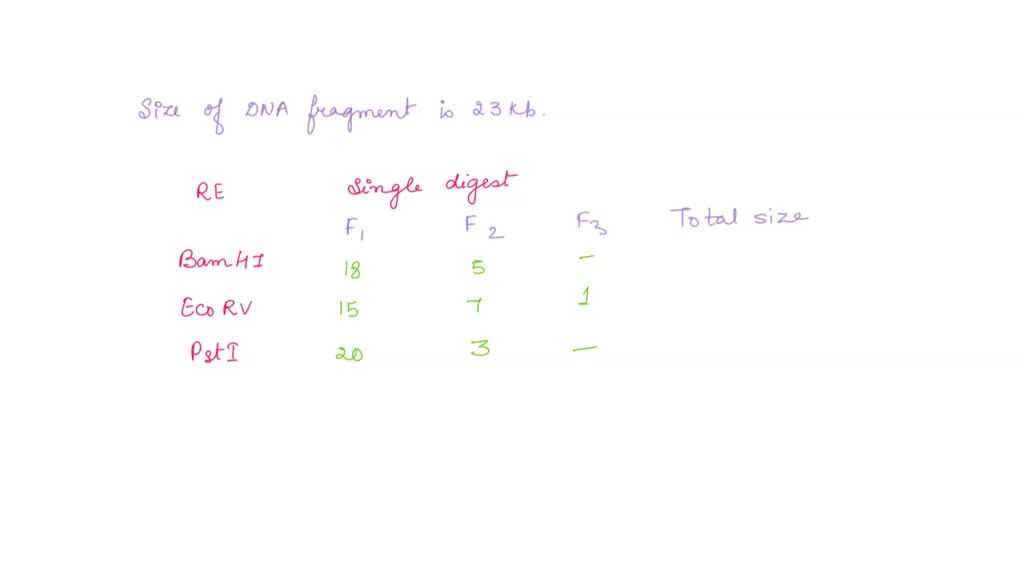 Size of DNA fragment is 23 Kb.
RE Single digest
F1 F2 F3 Total size
BamHI 18 5 –
Eco RV 15 7 1
PstI 20 3 –